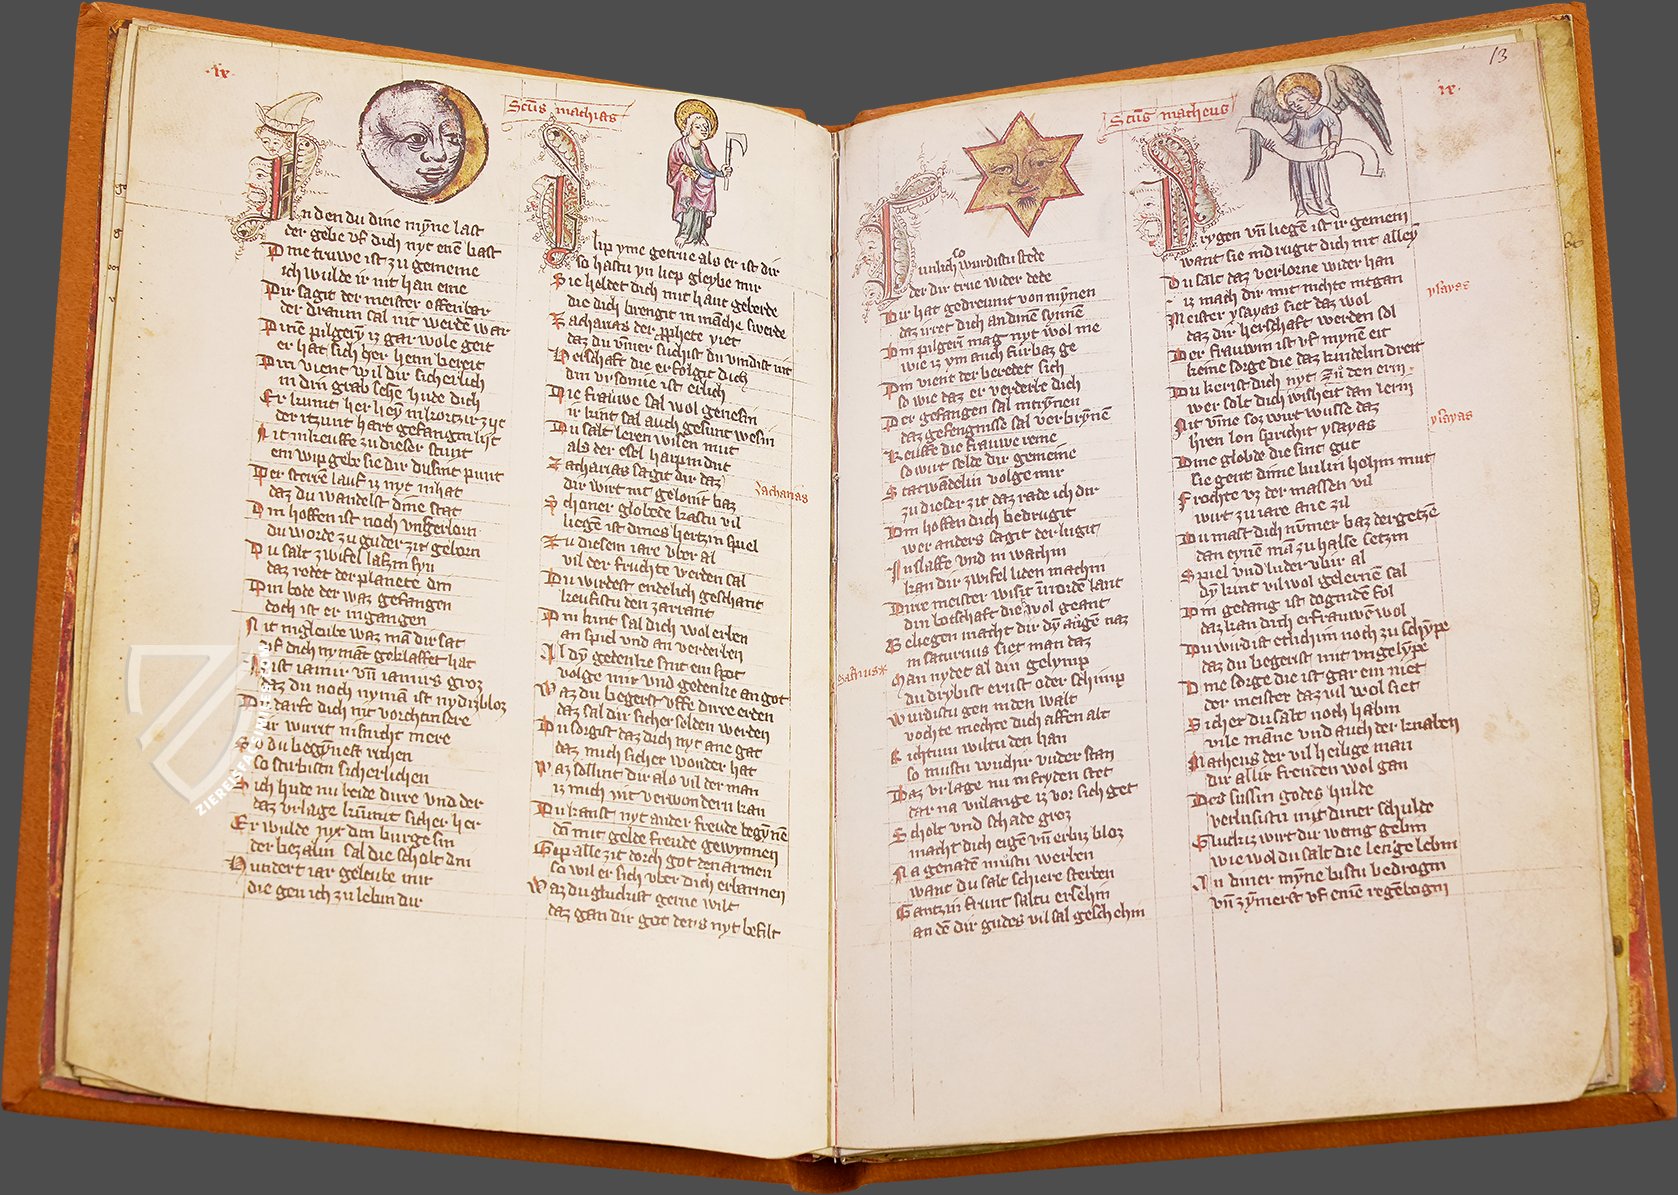 ·ix·
In den du dine mȳne last
der gebe vf dich nyt enē bast
Dine truwe ist zu gemeine
ich wulde ir nit han eine
Dir sagit der meister offenbar
der draum sal nit werdē war
Dinē pilgerȳ iz gar wole geit
er hat sich her heim bereit
Din vient wil dir sicherlich
in din grab sehē hude dich
Er kumit her heȳ in kortzir zijt
der itzunt hart gefangin lijt
Nit inkeuffe zu dieser stunt
ein wip gebe sie dir dusint punt
Der sterrē lauf iz nyt inhat
daz du wandelst dine stat
Din hoffen ist noch vnverlorn
du worde zu guder zit geborn
Du salt zwifel laszin syn
daz redet der planete din
Din bode der waz gefangen
doch ist er ingangen
Nit ingleube waz mā dir sat
vf dich nymāt geklaffet hat
iz ist iamir vn̄ iamirs groz
daz du noch nymā ist nydizbloz
Du darft dich nit vorchtin sere
dir wirrit nisnicht mere
So du begȳnest richen
so stirbistu sicherlichen
Sich hude nu beide dure vnd der
daz vrlage kūmit sicher her
Er wulde nyt din burge sin
der bezalin sal die scholt din
Hundert iar geleube mir
die gen ich zu lebin dir
Sctūs mathias
Blip yme getrue als er ist dir
so hastu yn liep gleybe mir
Sie heldet dich mit haut geberde
die dich brengit in māche swerde
Zacharias der pphete yiet
daz du vm̄er suchist du vindist nit
Heilschaft die er folgit dich
din vrsomie ist etlich
Die frauwe sal wol genesin
ir kint sal auch gesunt wesin
Du salt leren wisen mut
als der esel harpin dut
Zacharias sagit dir daz
dir wirt nit gelonit baz
Schoner globede hastu vil
liegē ist dines hertzin spiel
Zu diesem iare vber al
vil der fruchte werden sal
Du wirdest endelich geschant
keufistu den zarrant
Din kint sal dich wol erben
an spiel vnd an verderben
Al dȳ gedenke sint ein spot
volge mir vnd gedenke an got
Waz du begerst vffe dirre erden
daz sal dir sicher selden werden
Du sorgist daz dich nyt ane gat
daz mich sicher wonder hat
Waz sollint dir als vil der man
iz mich nit verwondern kan
Du kanst nyt ander freude begȳnē
dā mit gelde freude gewynnen
Gip alle zit dorch got den armen
so wil er sich vber dich erbarmen
Waz du gluckist gerne wilt
daz gan dir got ders nyt befilt
zacharias
13
·ix·
Sctūs matheus
so wurdistu stede
der dir true wider dede
Dir hat gedreumt von mȳnen
daz irret dich an dinē synnē
Din pilgerī mag nyt wol me
wie iz ym auch fur baz ge
Din vient der beredet sich
so wie daz er verderbe dich
Der gefangen sal intrȳnen
daz gefengnisse sal verbrȳnē
Keuffe die frauwe reine
so wirt selde dir gemeine
Statwadelin volge mir
zu dieser zit daz rade ich dir
Din hoffen dich bedrugit
wer anders sagit der lugit
In slaffe vnd in wachin
kan dir zwifel liden machin
Dirre meister wisit vwordē lant
din botschaft die wol geant
Beliegen macht dir dȳ augē naz
in saturnus siet man daz
Man nydet al din gelymp
du drybist ernst oder schimp
Wurdistu gen inden walt
vochte mechte dich affen alt
Richtum wiltu den han
so mustu wuchir vnder stan
Daz vrlage nu in fryden stet
dar na vnlange iz vor sich get
Scholt vnd schade groz
macht dich eigē vn̄ erbiz bloz
Na genadē mustu werben
want du salt schiere sterben
Gantzin frunt saltu ersehin
an dē dir gudes vil sal geschehin
Saturnus
Drygen vn̄ liegē ist ir gemein
want sie indrugit dich nit alleȳ
Du salt daz verlorne wider han
iz mach dir mit nichte intgan
Meister ysayas siet daz wol
daz dir herschaft werden sol
Der frauwin ist vf mynē eit
keine sorge die daz kindelin dreit
Du kerist dich nyt zu den ern
wer solt dich wisheit dan lern
Nit vm̄e soz wirt wusse daz
hren lon spricht ysayas
Dine globde die sint gut
sie gent dinne bulin hohin mut
Frochte vz der massen vil
wirt zu iare ane zil
Du mast dich nūmer baz dergetzē
dan eynen mā zu halse setzin
Spiel vnd luder vbir al
dȳ kint vil wol gelernē sal
Din gedang ist dogindē fol
daz kan dich erfrauwē wol
Du wirdist etlich im noch zu schȳpe
daz du begerist mit vngelȳpe
Dine sorge die ist gar ein niet
der meister daz vil wol siet
Sicher du salt noch habin
vile māne vnd auch der knaben
Matheus der vil heilige man
dir allir freuden wol gan
Des sussin godes hulde
verlusistu mit diner schulde
Gluckiz wirt dir wenig gebin
wie wol du salt die lenge lebin
An diner mȳne bistu bedrogin
vn̄ zȳmerst vf einē regēbogin
ysayas
ysayas